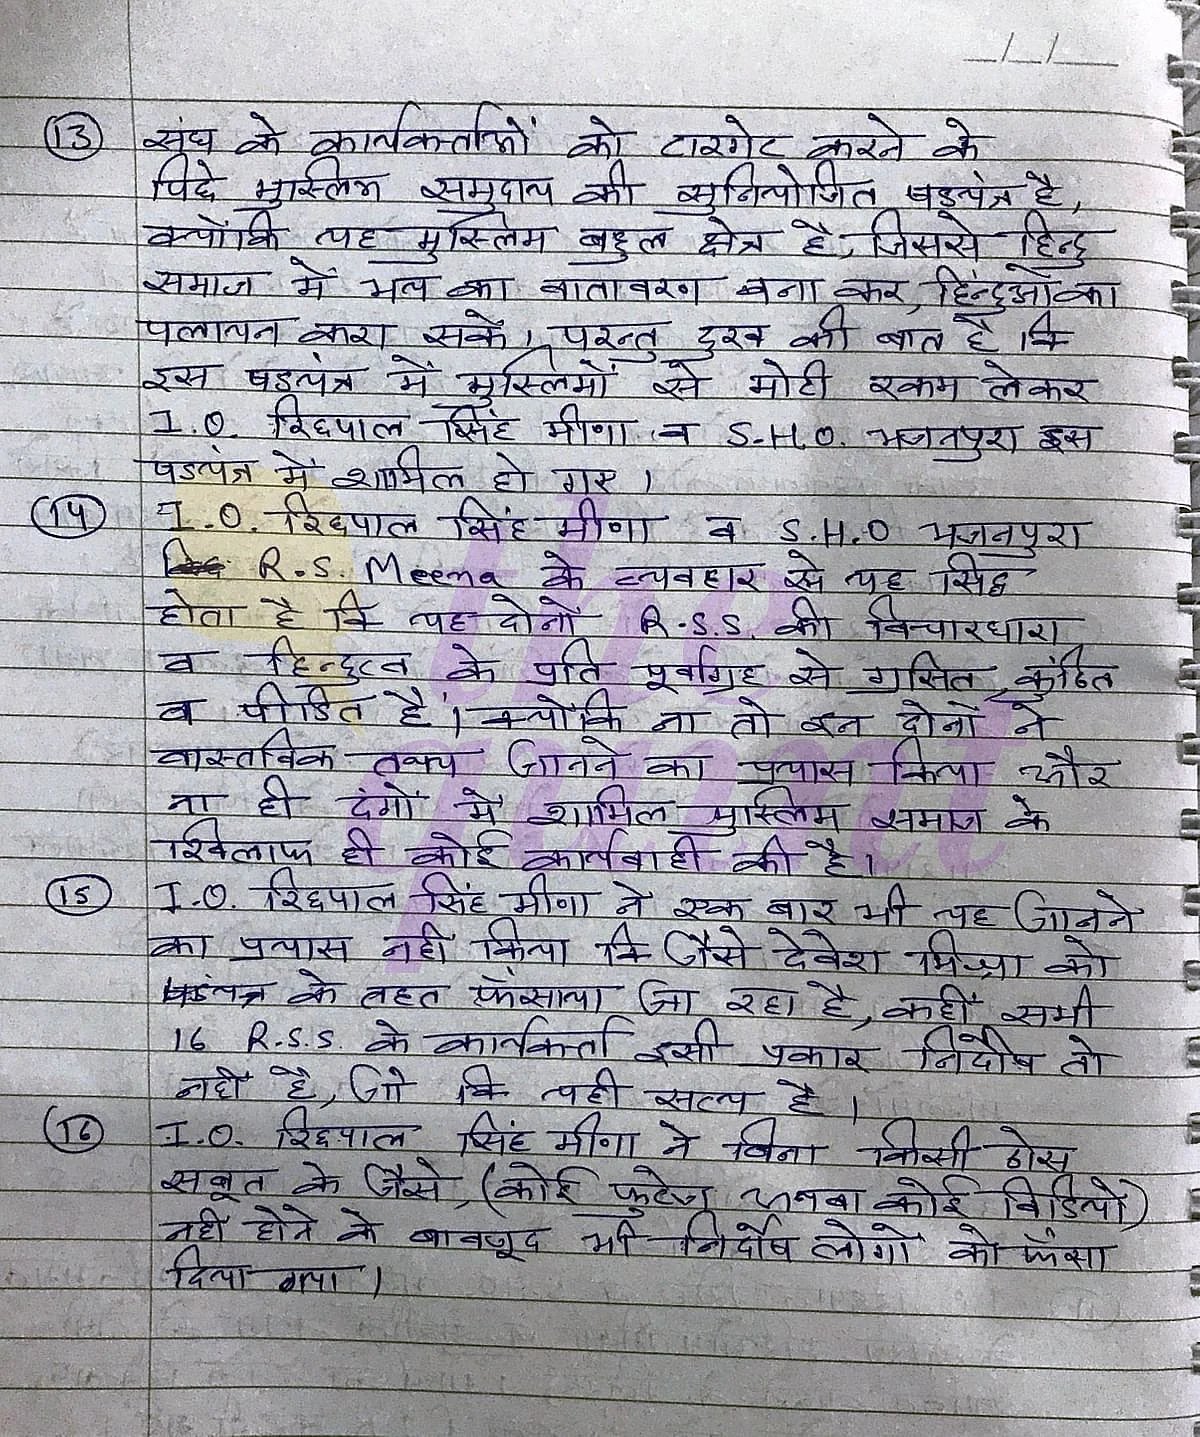 __/__/____
(13) संघ के कार्यकर्ताओं को टारगेट करने के
पिछे मुस्लिम समुदाय की सुनियोजित षडयंत्र है,
क्योंकि यह मुस्लिम बहुल क्षेत्र है, जिससे हिन्दु
समाज में भय का वातावरण बना कर, हिंन्दुओं का
पलायन करा सकें। परन्तु दुख की बात है कि
इस षडयंत्र में मुस्लिमों से मोटी रकम लेकर
I.O. रिछपाल सिंह मीणा व S.H.O. भजनपुरा इस
षडयंत्र में शामिल हो गए।
(14) I.O. रिछपाल सिंह मीणा व S.H.O भजनपुरा
R.S. Meena के व्यवहार से यह सिद्ध
होता है कि यह दोनों R.S.S. की विचारधारा
व हिन्दुत्व के प्रति पूर्वाग्रह से ग्रसित, कुंठित
व पीडित हैं। क्योंकि ना तो इन दोनों ने
वास्तविक तथ्य जानने का प्रयास किया और
ना ही दंगों में शामिल मुस्लिम समाज के
खिलाफ ही कोई कार्यवाही की है।
(15) I.O. रिछपाल सिंह मीणा ने एक बार भी यह जानने
का प्रयास नहीं किया कि जैसे देवेश मिश्रा को
षडंयत्र के तहत फँसाया जा रहा है, कहीं सभी
16 R.S.S. के कार्यकर्ता इसी प्रकार निर्दोष तो
नहीं है, जो कि यही सत्य है।
(16) I.O. रिछपाल सिंह मीणा ने बिना किसी ठोस
सबूत के जैसे, (कोई फुटेज अथवा कोई विडियो)
नहीं होने के बावजूद भी निर्दोष लोगों को फँसा
दिया गया।
the
quint